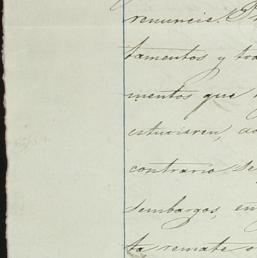 renuncie.
tamentos y tra
mentos que
estuvieren, ac
contrario se
sembargos, en
ta remate o